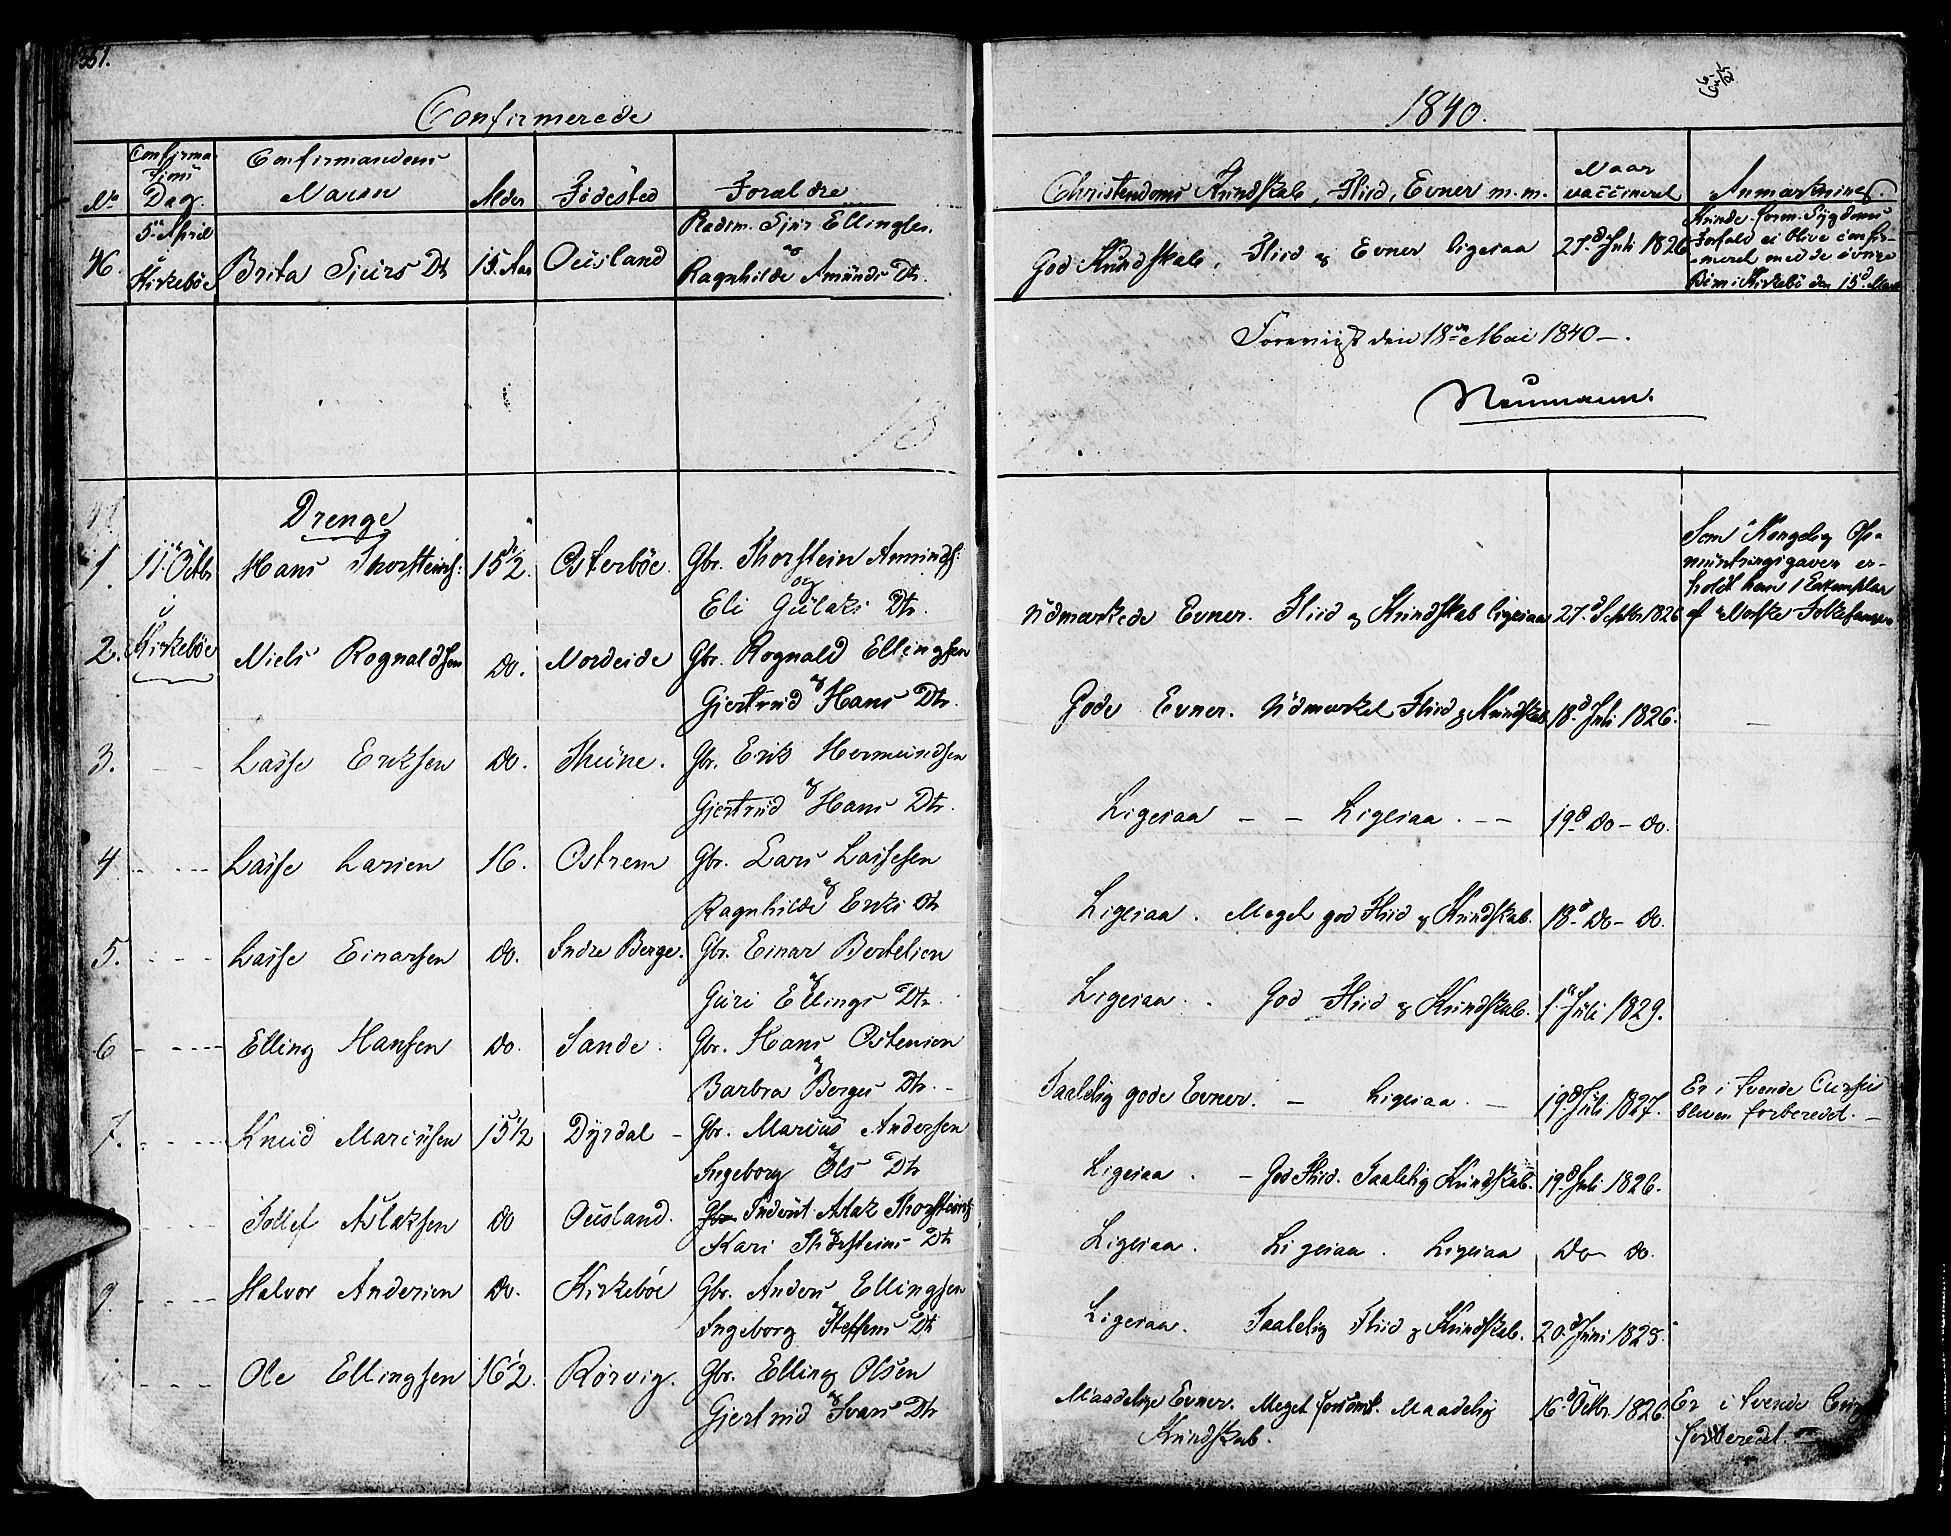 351.
Confirmerede
1840.
No
Confirma-
tions
Dag
Confirmandens
Navn
Alder
Fødested
Forældre
Christendoms Kundskab, Fliid, Evner m.m.
Naar
vaccineret
Anmærkning.
46.
5te April
Kirkeböe
Brita Sjurs Dtr
15. Aar
Ousland
Sjur Ellings.
og
Ragnhilde Amunds Dtr.
God Kundskab, Fliid og Evner ligesaa
27d Juli 1826
med de övrige
Börn i Kirkebö den 15d Marts
Foreviist den 18de Mai 1840 -.
Neumann.
Drenge
1. 11te Octbr Hans Thorsteins: 15 1/2. Österböe. Gbr. Thorstein Amunds:
og
Eli Gulaks Dtr.
Udmærkede Evner. Fliid og Kundskab ligesaa 27d Septbr 1826
Som Kongelig Op-
muntringsgaver er-
holdt han 1 Exemplar
af Norske
2. Kirkeböe Niels Rognaldsen do. Nordeide Gbr. Rognald Ellingsen
og
Gjertrud Hans Dtr.
Gode Evner. Udmærket Fliid og Kundskab 18d Juli 1826.
3. Lasse Eriksen do. Thüne. Gbr. Erik Hermundsen
og
Gjertrud Hans Dtr.
Ligesaa - - Ligesaa. - - 19d do - do.
4 Lasse Larsen 16. Ostrem Gbr. Lars Lassesen
og
Ragnhilde Eriks Dtr
Ligesaa. Meget god Fliid og Kundskab. 18d do - do.
5. Lasse Einarsen do. Indre Berge. Gbr. Einar Bertelsen
og
Guri Ellings Dtr.
Ligesaa. God Fliid og Kundskab. 1te Juli 1829.
6 Elling Hansen do. Sande. Gbr. Hans Ostensen
og
Barbra Berges Dtr. -
Taalelig gode Evner. - Ligesaa. - 19d Juli 1827.
Er i tvende Cursus
bleven forberedet. -
7. Knud Mariüsen 15 1/2 Dyrdal - Gbr. Marius Andersen
og
Ingeborg Ols Dtr
Ligesaa. - God Fliid. Taalelig Kundskab. 19d Juli 1826.
Tollef Aslaksen do Ousland. Inderst Aslak Thorsteins:
Kari Thorsteins Dtr
Ligesaa. Ligesaa. Ligesaa do - do.
9 Halvor Andersen do. Kirkeböe Gbr. Anders Ellingsen
og
Ingeborg Steffens Dtr
Ligesaa. Taalelig Fliid og Kundskab. 20d Juni 1825.
Ole Ellingsen 16 1/2 Rörvig. Gbr. Elling Olsen
og
Gjertrud Ivars Dtr
Maadelige Evner. Meget forsömt. Maadelig
Kundskab.
16d Octbr. 1826.
Er i tvende
forberedet. -